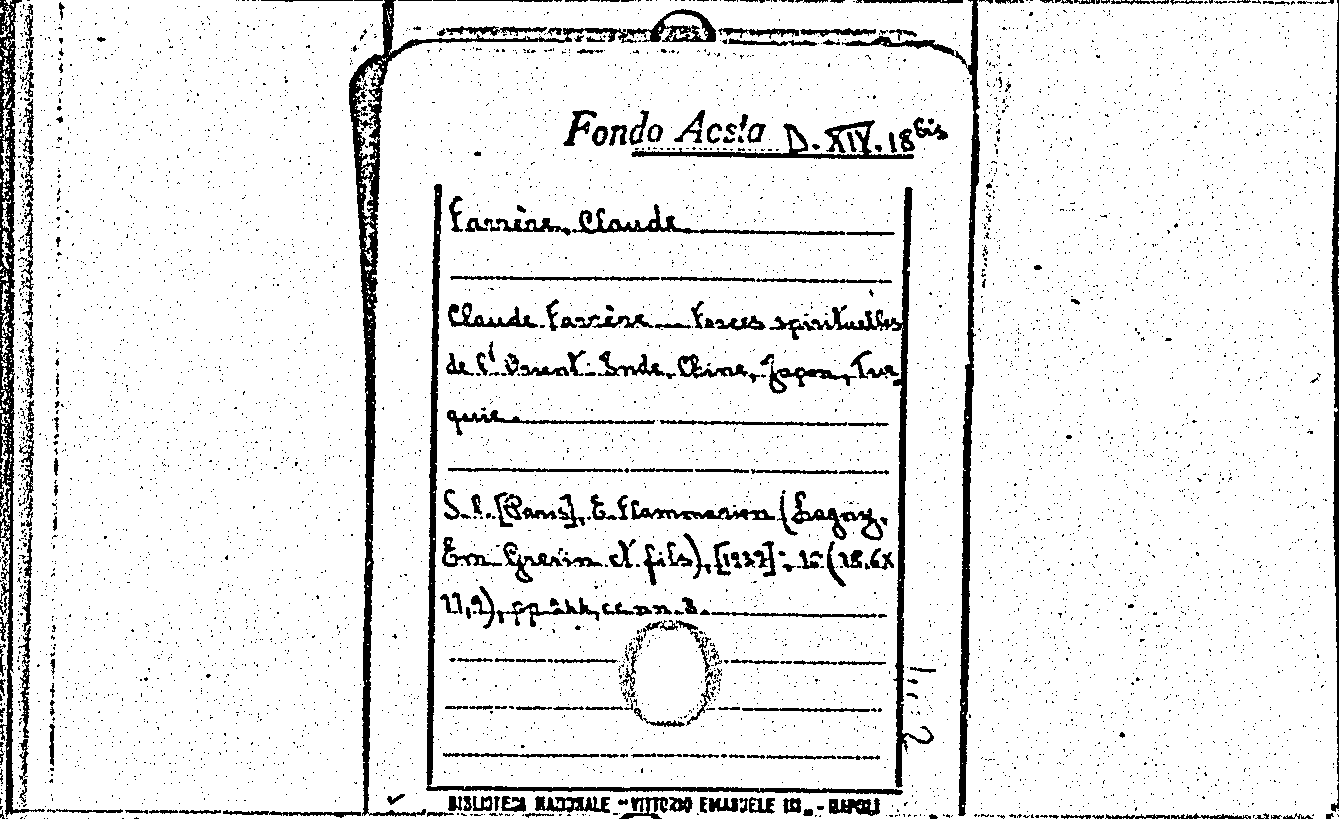 Fondo Aosta D. XIV. 18 bis
Farrère, Claude
Claude Farrère. Forces spirituelles
de l'Orient: Inde, Chine, Japon, Tur-
quie.
S. l. [Paris], E. Flammarion (Lagny,
Em. Grevin et fils), [1937]; 16° (18,6x
11,9), pp. 244, cc. nn. 2.
BIBLIOTECA NAZIONALE "VITTORIO EMANUELE III" - NAPOLI